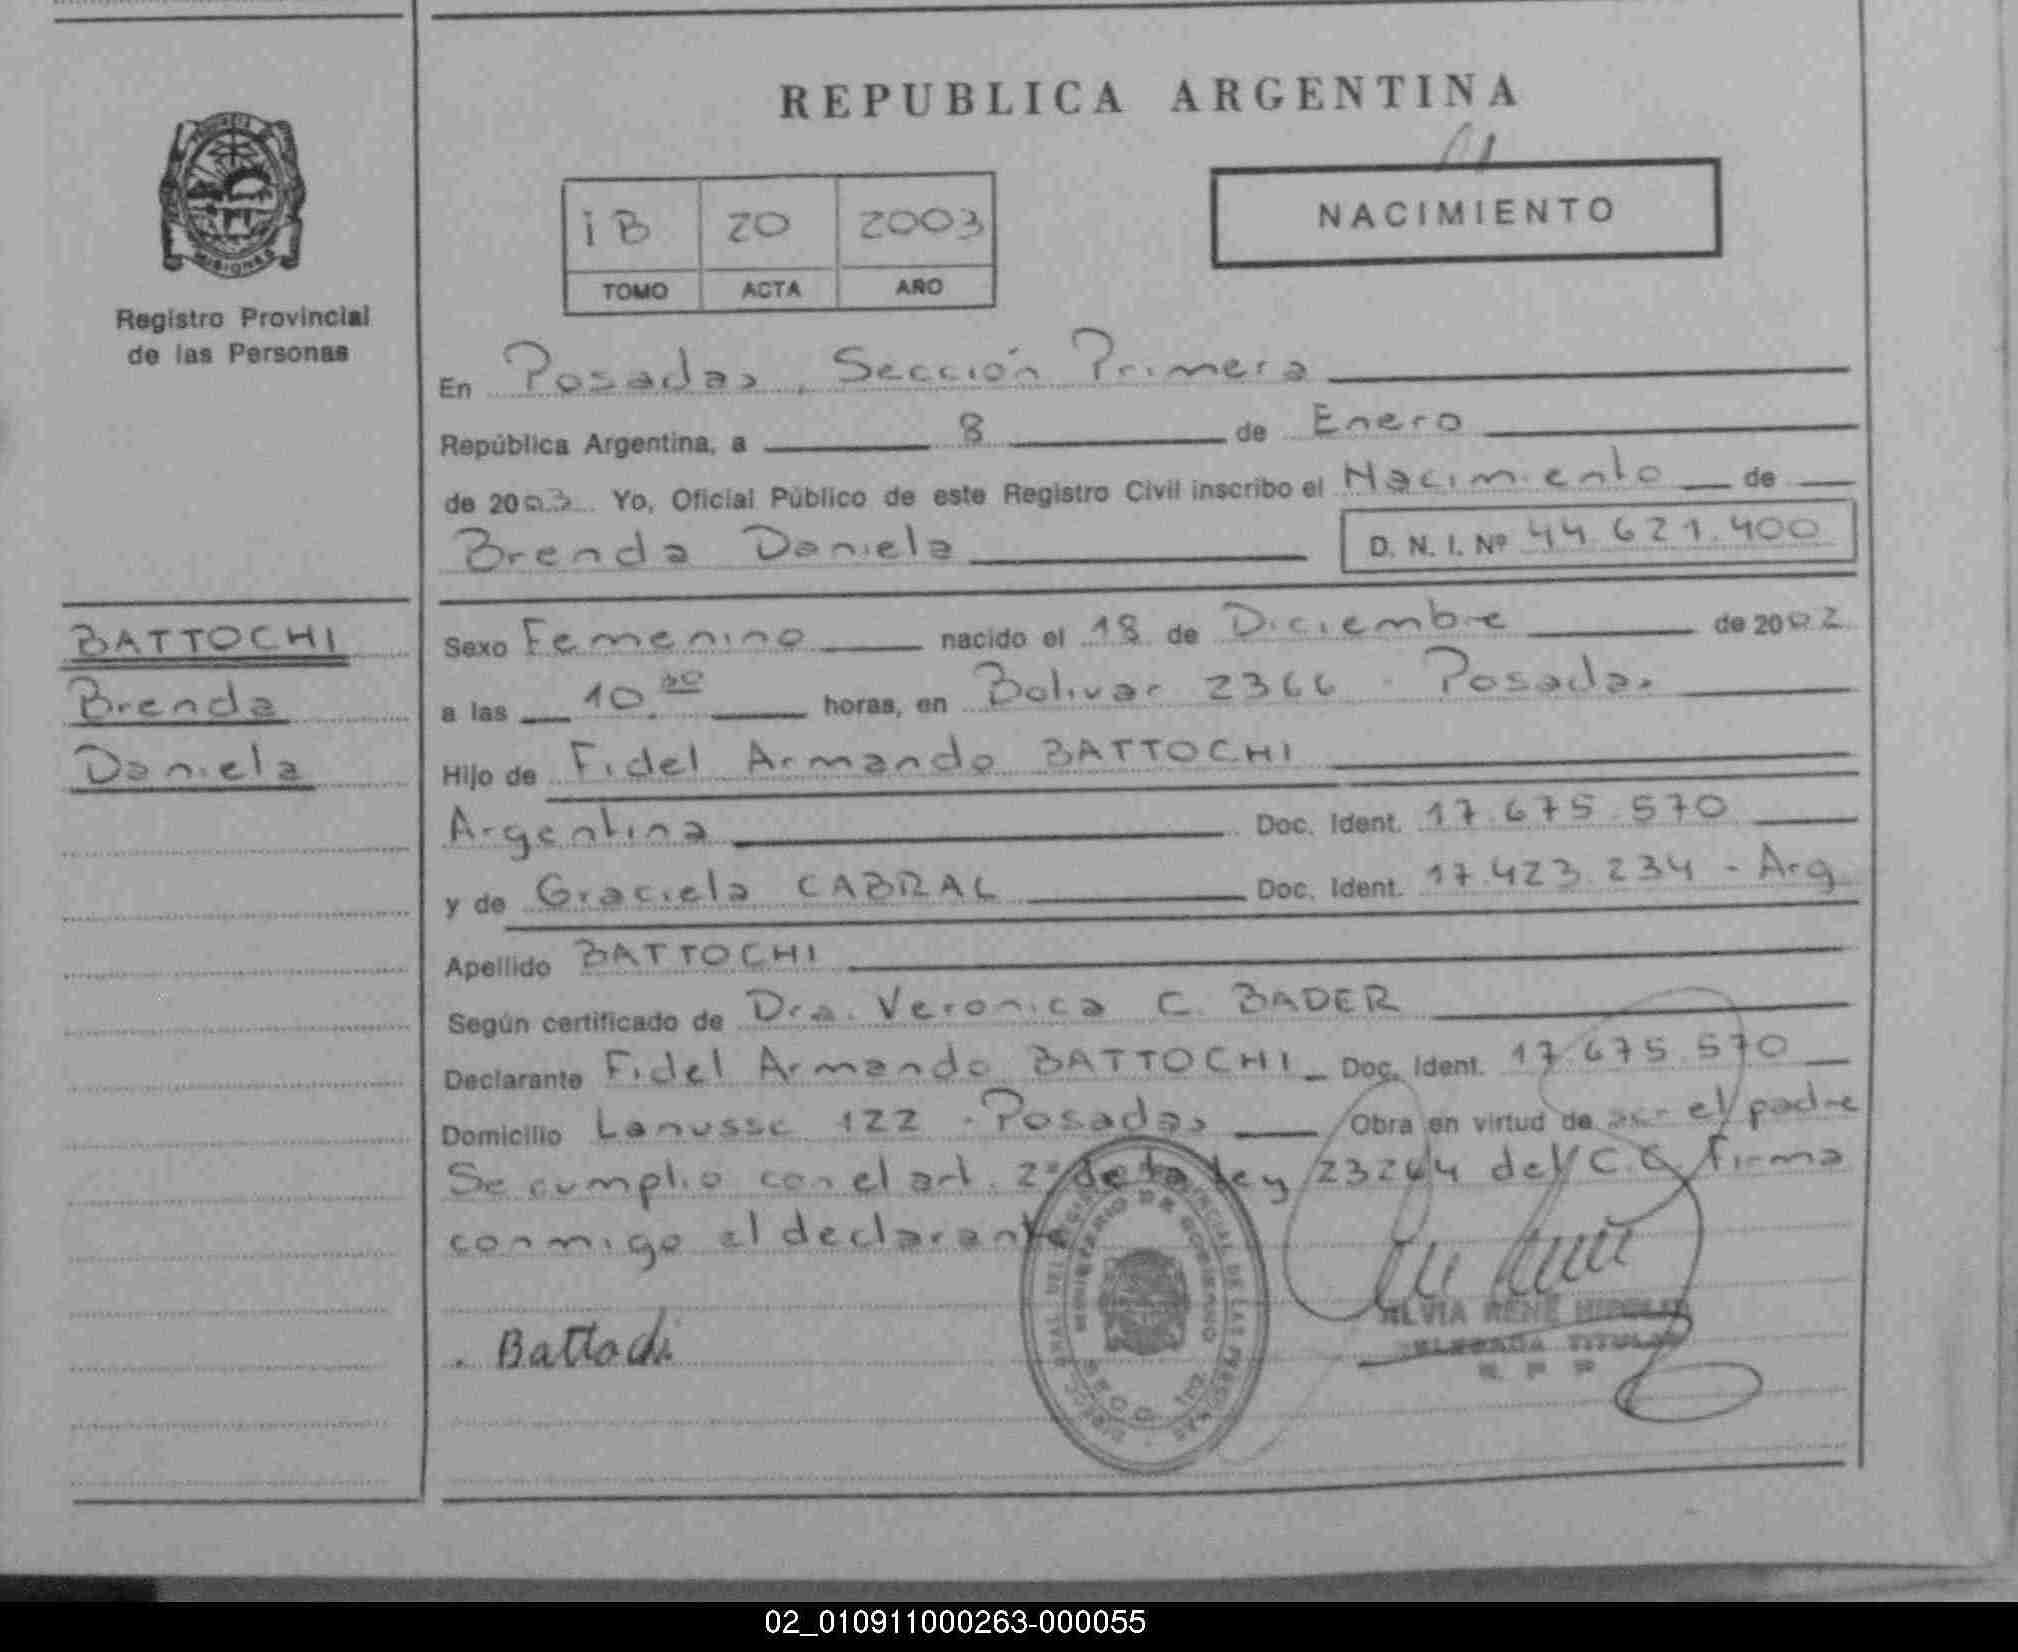 REPUBLICA ARGENTINA
MISIONES
Registro Provincial
de las Personas
1B 20 2003
TOMO ACTA AÑO
NACIMIENTO
En Posadas, Sección Primera
República Argentina, a 8 de Enero
de 2003 Yo, Oficial Público de este Registro Civil inscribo el Nacimiento de
Brenda Daniela D. N. I. Nº 44.621.400
BATTOCHI
Brenda
Daniela
Sexo Femenino nacido el 18 de Diciembre de 2002
a las 10.30 horas, en Bolivar 2366 - Posadas
Hijo de Fidel Armando BATTOCHI
Argentina Doc. Ident. 17.675.570
y de Graciela CABRAL Doc. Ident. 17.423.234 - Arg
Apellido BATTOCHI
Según certificado de Dra. Veronica C. BADER
Declarante Fidel Armando BATTOCHI Doc. Ident. 17.675.570
Domicilio Lanusse 122 - Posadas Obra en virtud de ser el padre
Se cumplio con el art. 2º de la ley 23264 del C.C. Firma
conmigo el declarante
Battochi
MINISTERIO DE GOBIERNO
RENE
TITULAR
R P P
02_010911000263-000055